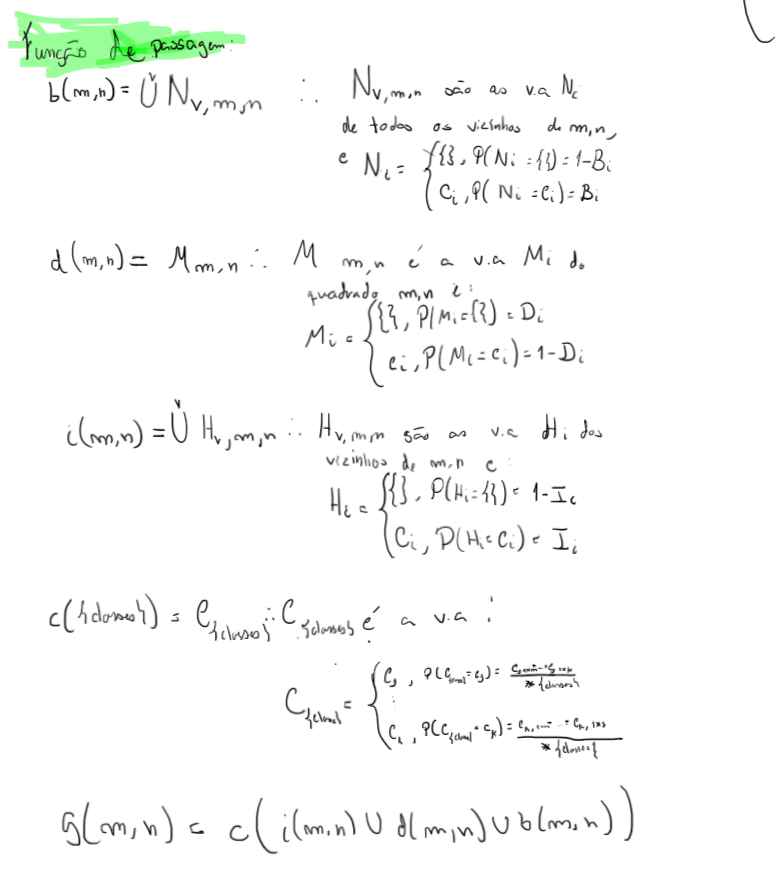 Função de passagem:
b(m,n) = Ů N_{v,m,n} ∴ N_{v,m,n} são as v.a N_i
de todos os vizinhos de m,n,
e N_i = { {}, P(N_i = {}) = 1-B_i
C_i, P(N_i = C_i) = B_i
d(m,n) = M_{m,n} ∴ M_{m,n} é a v.a M_i do
quadrado m,n e:
M_i = { {}, P(M_i = {}) = D_i
c_i, P(M_i = c_i) = 1-D_i
i(m,n) = Ů H_{v,m,n} ∴ H_{v,m,n} são as v.a H_i dos
vizinhos de m,n e:
H_i = { {}, P(H_i = {}) = 1-I_i
C_i, P(H_i = C_i) = I_i
c({classes}) = C_{classes} ∴ C_{classes} é a v.a:
g(m,n) = c(i(m,n) ∪ d(m,n) ∪ b(m,n))